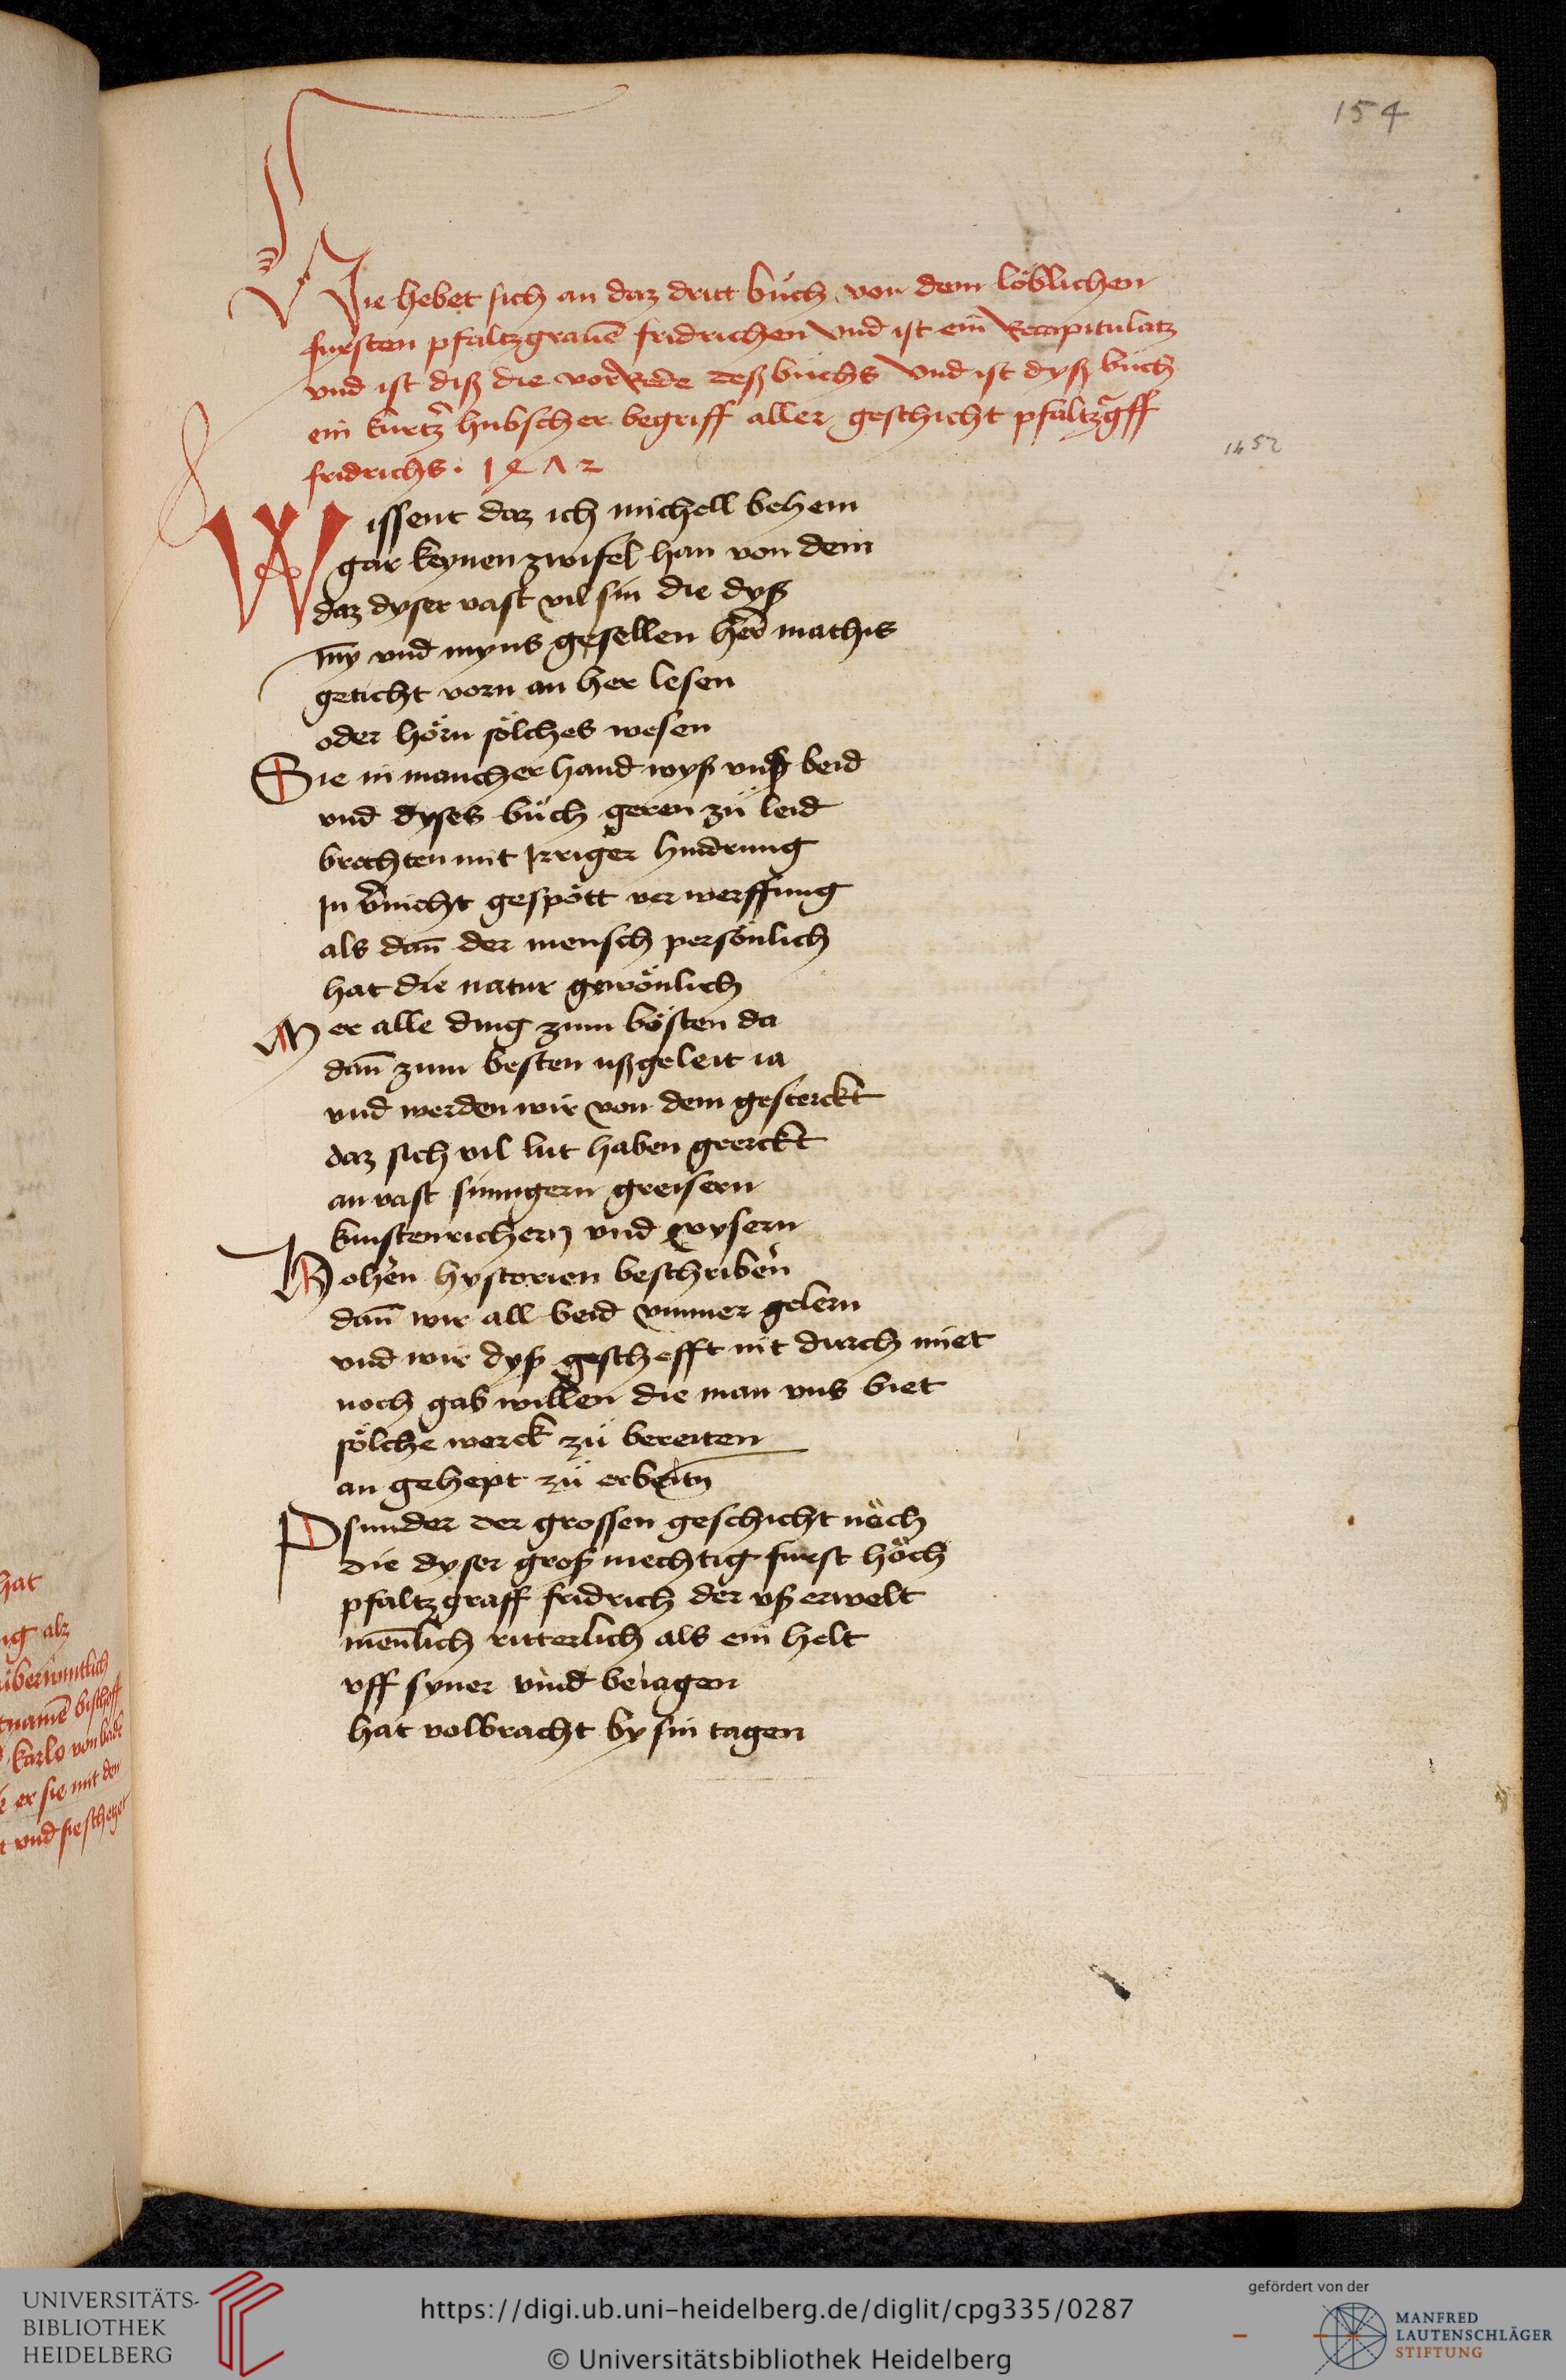 154
Hie hebet sich an daz dritt bůch von dem löblichen
fursten pfaltzgrauē fridrichen vnd ist ein Recapitulatz
vnd ist diß die vor Rede deß bůchs vnd ist dyß bůch
ein kurtzer hubscher begriff aller geschicht pfaltzgff
fridrichs · 1472
1452
Wissent daz ich michell behem
gar keynen zwifel han von dem
daz dyser vast vil sin die dyß
my vnd myns gesellen her mathis
geticht vorn an her lesen
oder hörn sölches wesen
Die in mancher hand wyß vnß beid
vnd dyses bůch geren zů leid
brechten mit Irriger hindrung
In vernicht gespött verwerffung
als dan̄ der mensch persönlich
hat die natur gewönlich
Mer alle ding zum bösten da
dan̄ zum besten ußgeleit ia
vnd werden wir von dem gesterckt
daz sich vil lut haben geerckt
an vast sinnigern greisern
kunstenrichern vnd wysern
Hohen hystorien beschriben
dan̄ wir all beid ymmer gelern
vnd wir dyß geschefft nit durch miet
noch gab willen die man vns biet
sölche werck zů bereiten
an gehept zů erbeitn
Psunder der grossen geschicht nöch
die dyser groß mechtig furst höch
pfaltzgraff fridrich der vß erwelt
men̄lich ritterlich als ein helt
vff syner vind beiagen
hat volbracht by sin tagen
hat
er sie mit den
UNIVERSITÄTS-
BIBLIOTHEK
HEIDELBERG
https://digi.ub.uni-heidelberg.de/diglit/cpg335/0287
© Universitätsbibliothek Heidelberg
gefördert von der
MANFRED
LAUTENSCHLÄGER
STIFTUNG